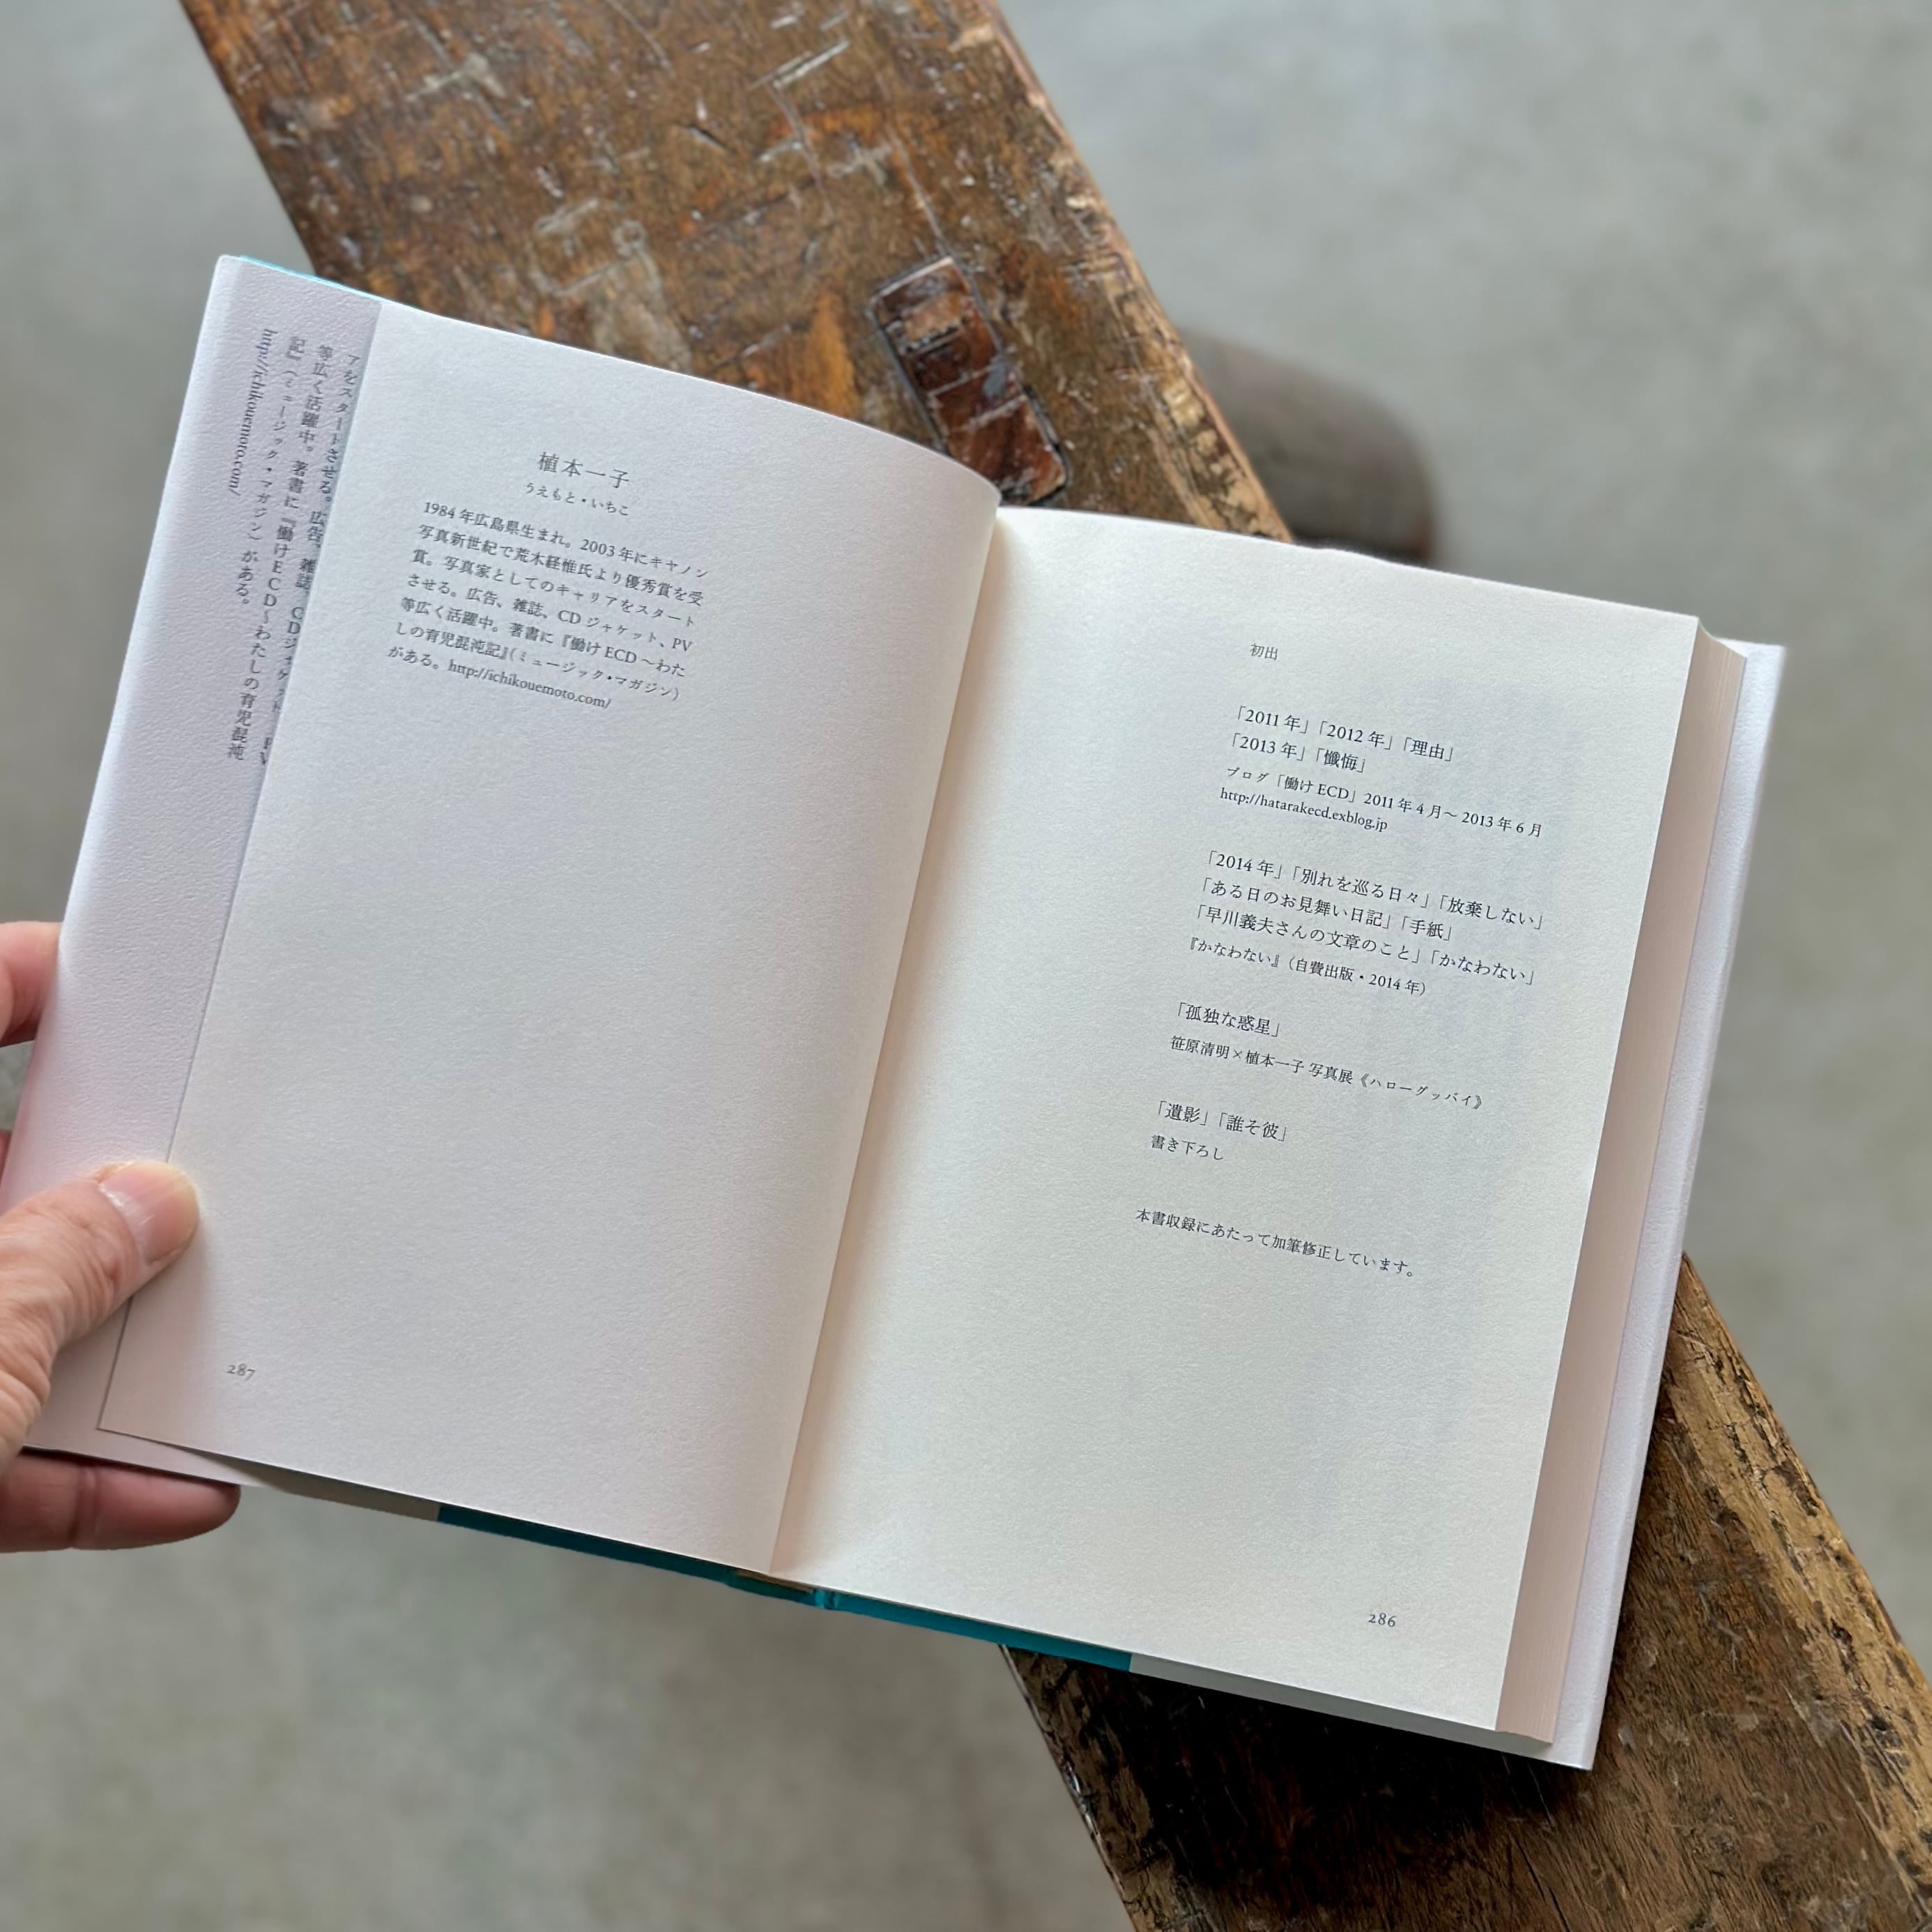 初出
「2011年」「2012年」「理由」
「2013年」「懺悔」
ブログ「働けECD」2011年4月〜2013年6月
http://hatarakecd.exblog.jp
「2014年」「別れを巡る日々」「放棄しない」
「ある日のお見舞い日記」「手紙」
「早川義夫さんの文章のこと」「かなわない」
『かなわない』（自費出版・2014年）
「孤独な惑星」
笹原清明×植本一子 写真展《ハローグッバイ》
「遺影」「誰そ彼」
書き下ろし
本書収録にあたって加筆修正しています。
286
植本一子
うえもと・いちこ
1984年広島県生まれ。2003年にキヤノン
写真新世紀で荒木経惟氏より優秀賞を受
賞。写真家としてのキャリアをスタート
させる。広告、雑誌、CDジャケット、PV
等広く活躍中。著書に『働けECD〜わた
しの育児混沌記』（ミュージック・マガジン）
がある。http://ichikouemoto.com/
287
アをスタートさせる。広告、雑誌、CDジャケット、PV
等広く活躍中。著書に『働けECD〜わたしの育児混沌
記』（ミュージック・マガジン）がある。
http://ichikouemoto.com/